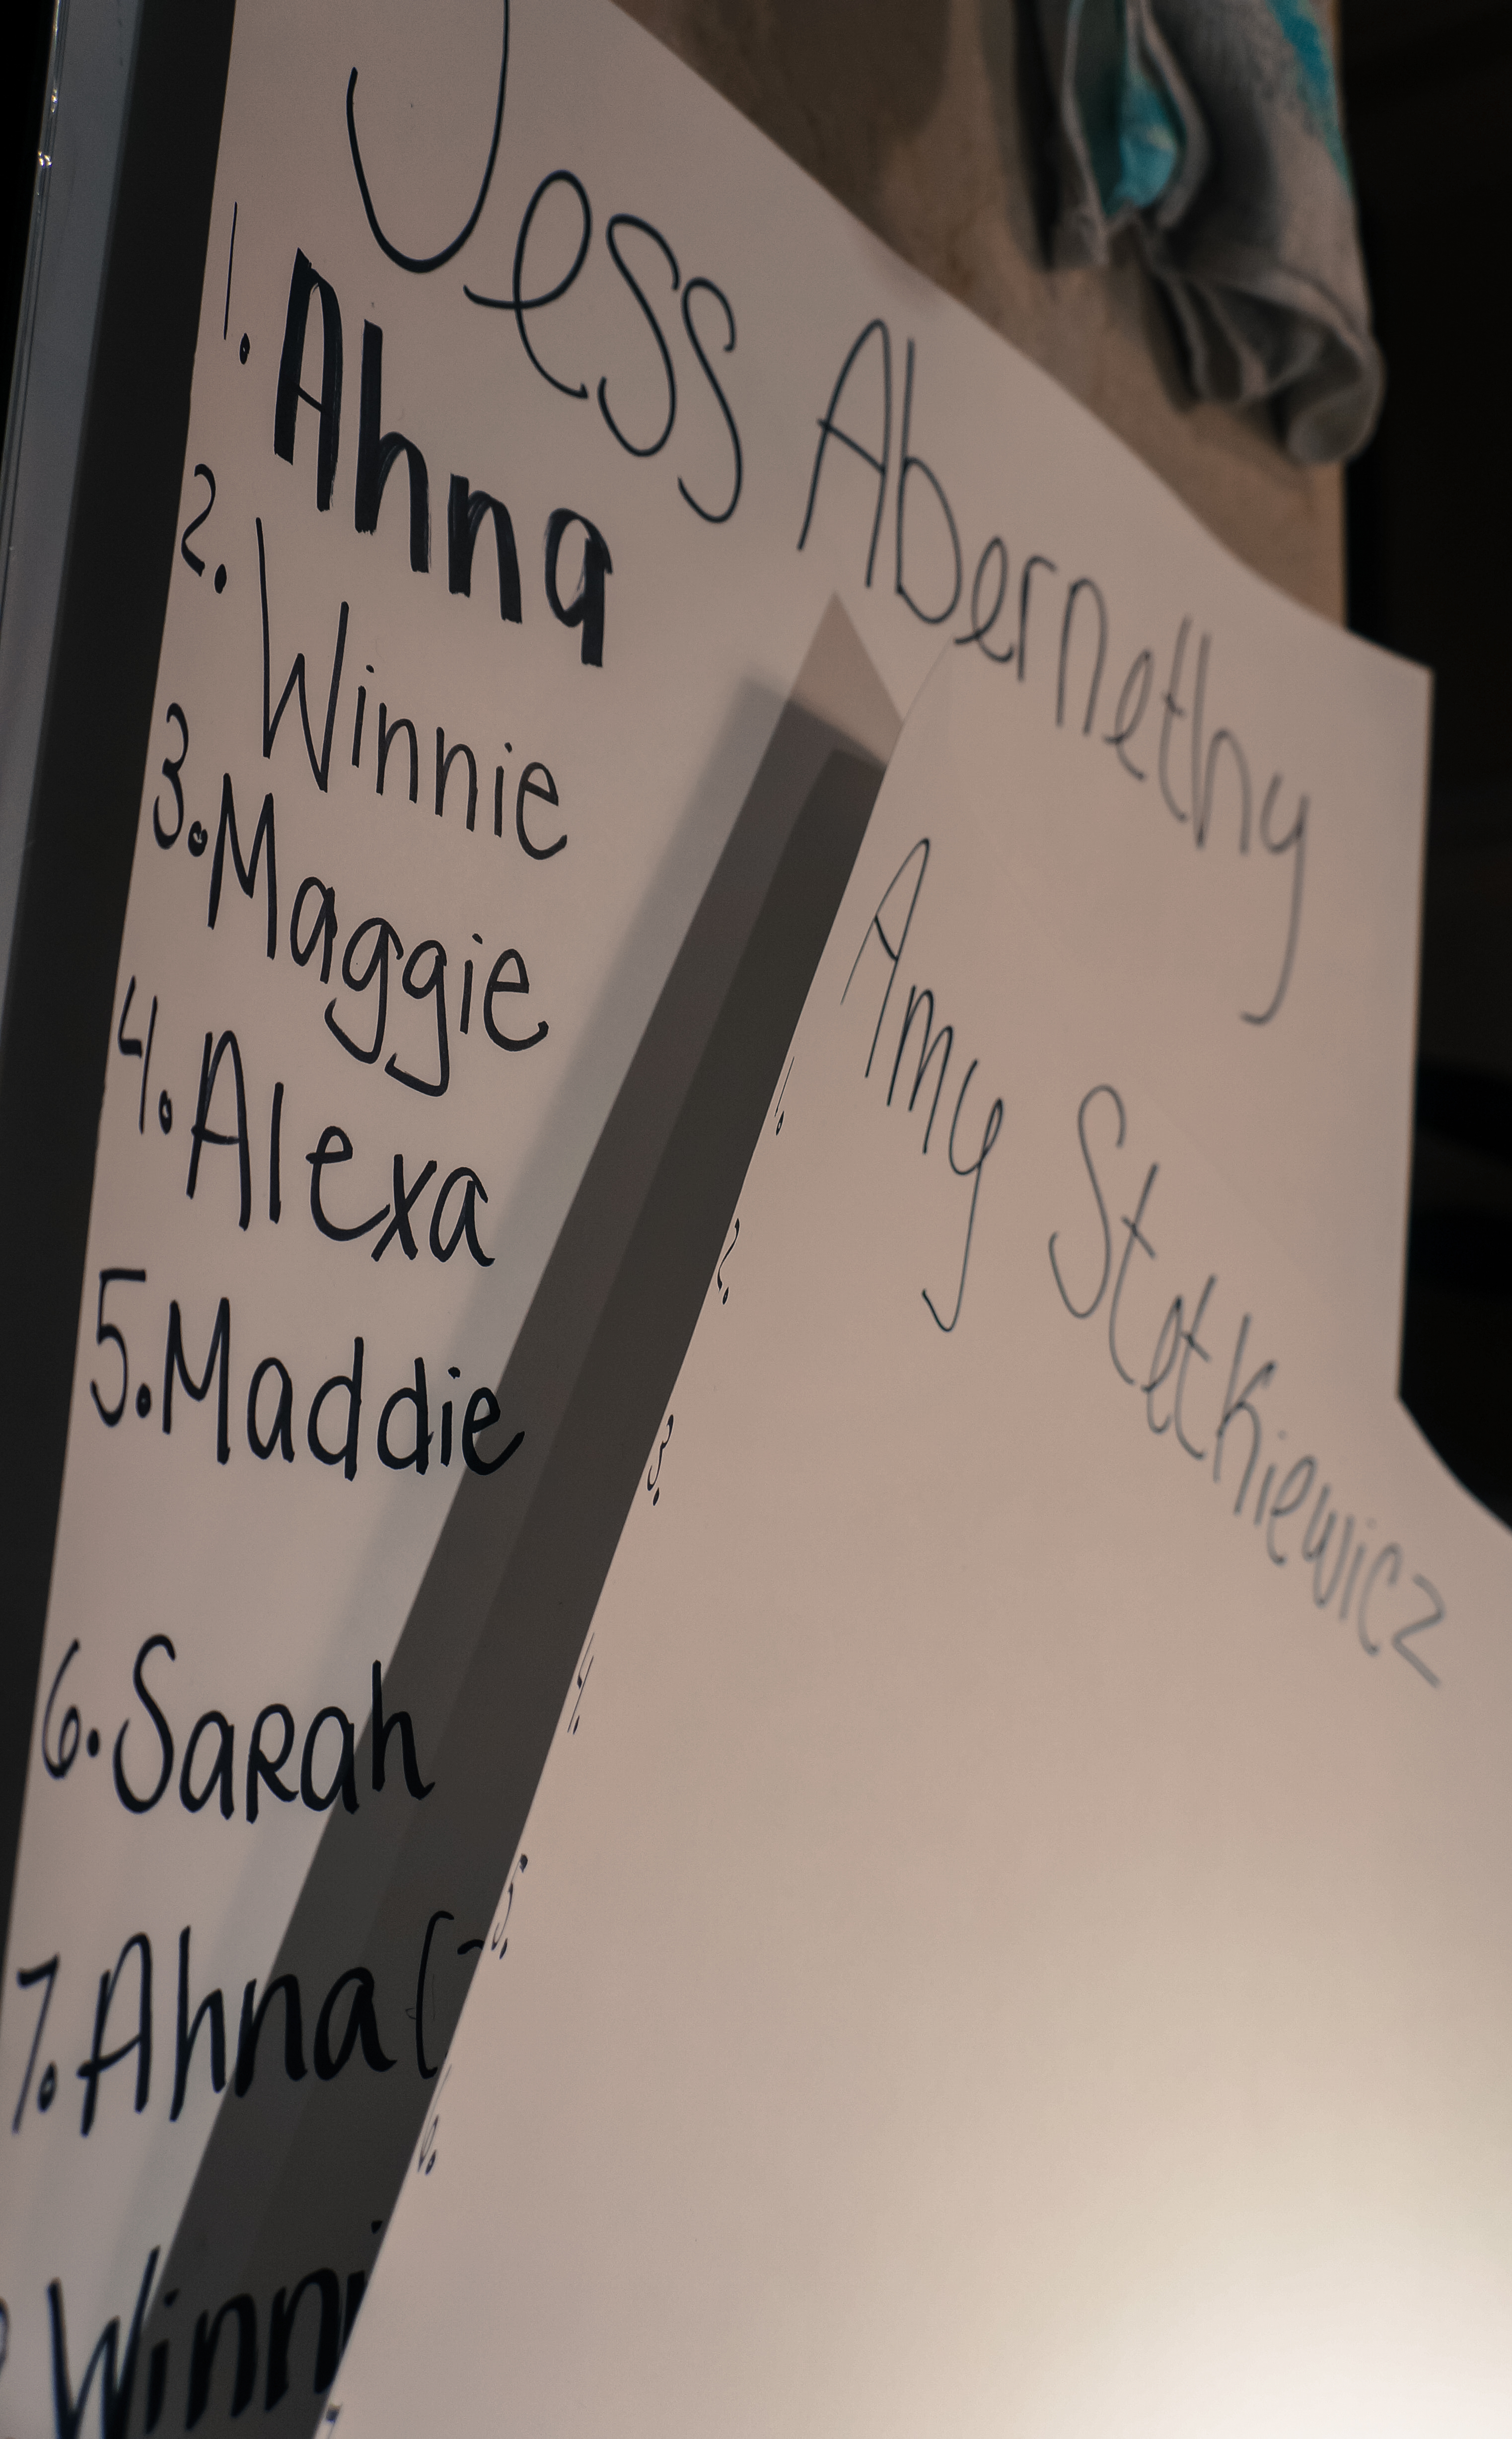 Jess Abernethy
1. Ahna
2. Winnie
3. Maggie
4. Alexa
5. Maddie
6. Sarah
7. Ahna (
Winni
Amy Stetkiewicz
1.
2.
3.
4.
5.
6.